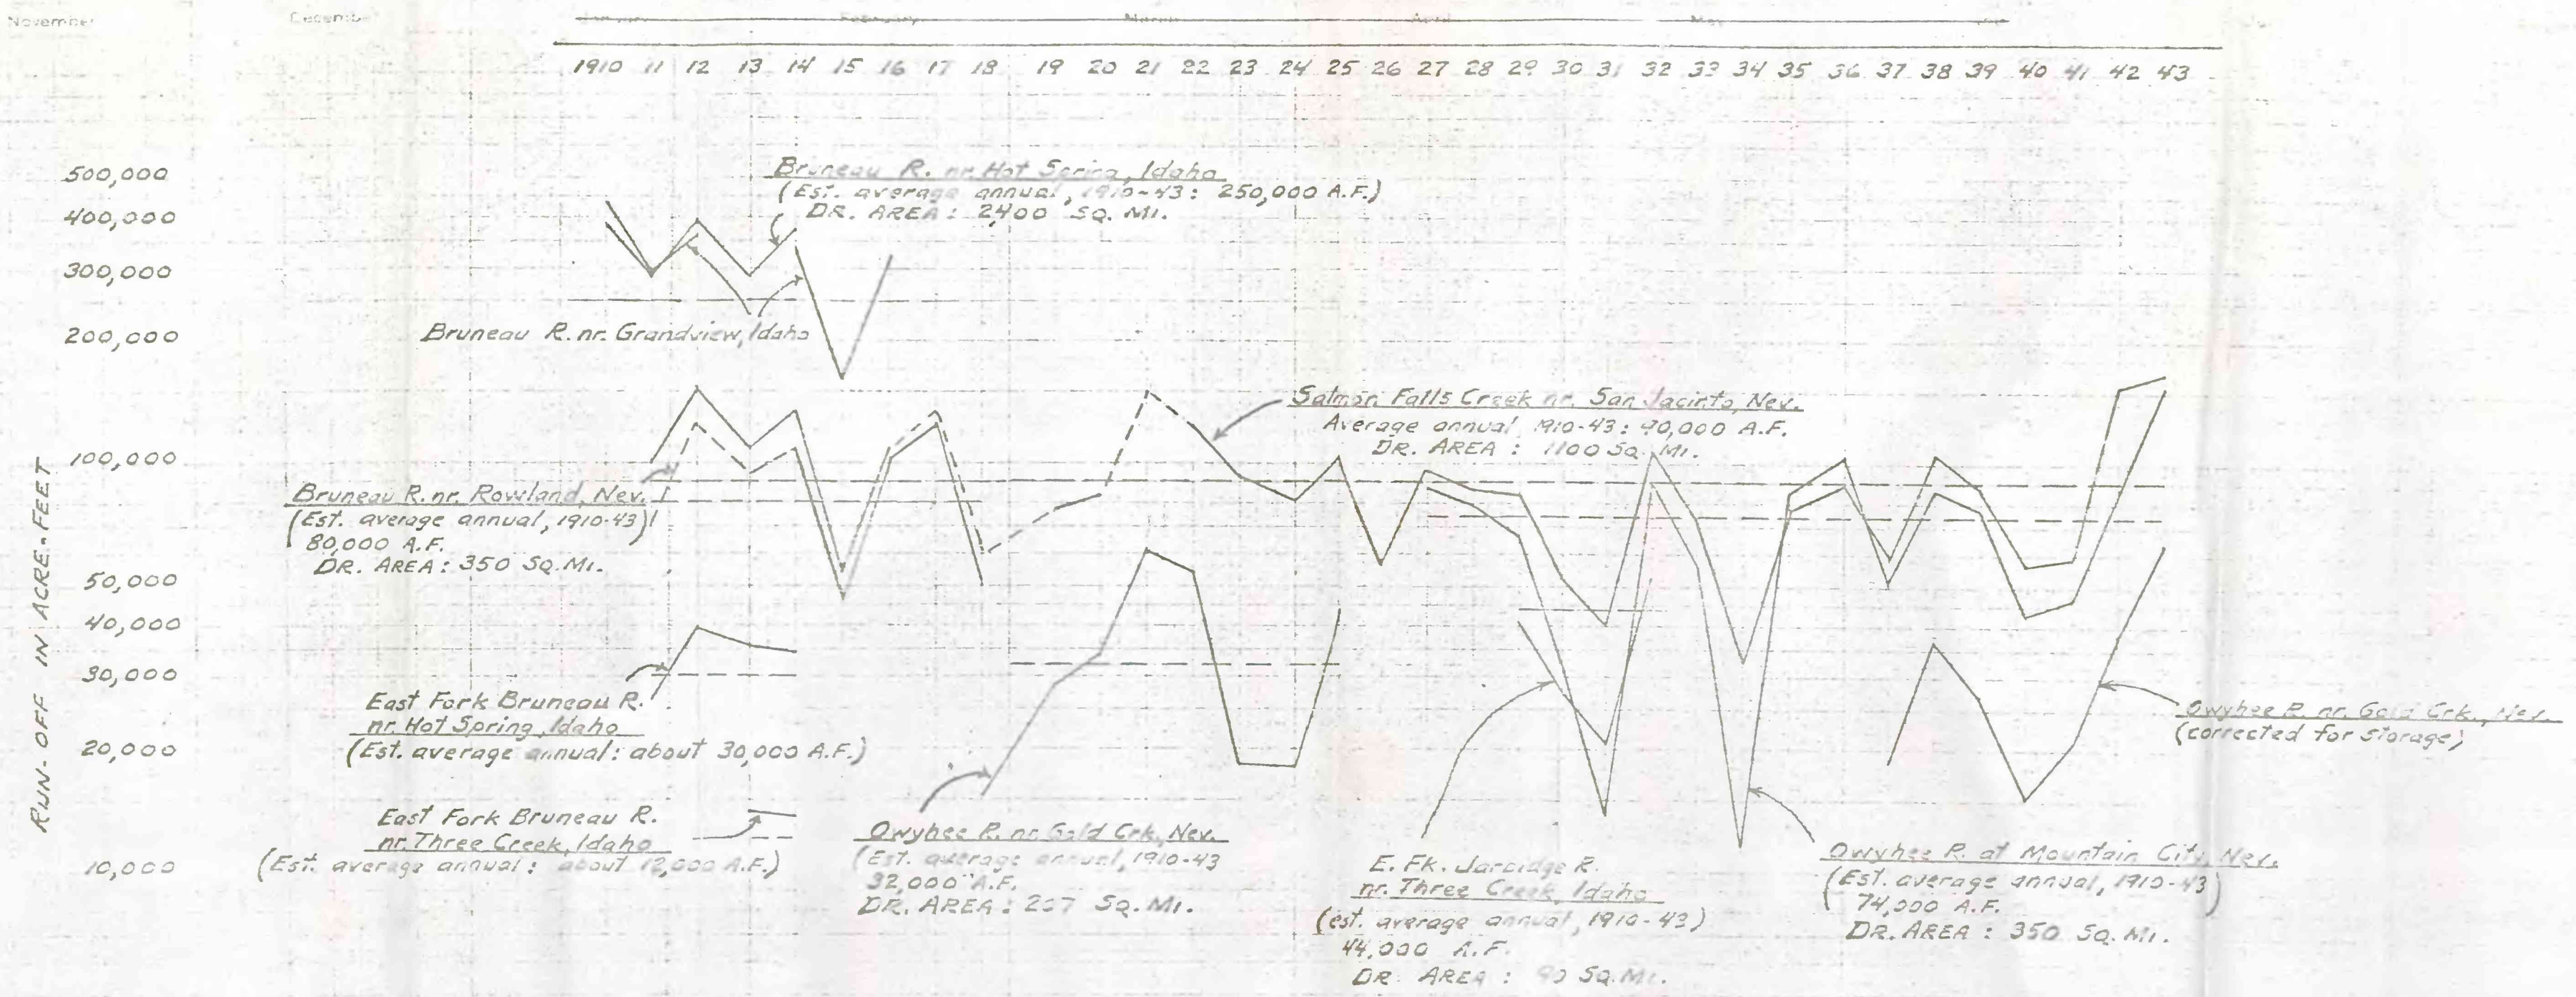 November December January February March April May
1910 11 12 13 14 15 16 17 18 19 20 21 22 23 24 25 26 27 28 29 30 31 32 33 34 35 36 37 38 39 40 41 42 43
RUN-OFF IN ACRE-FEET
500,000
400,000
300,000
200,000
100,000
50,000
40,000
30,000
20,000
10,000
Bruneau R. nr. Hot Spring, Idaho
(Est. average annual, 1910-43: 250,000 A.F.)
DR. AREA: 2,400 SQ. MI.
Bruneau R. nr. Grandview, Idaho
Salmon Falls Creek nr. San Jacinto, Nev.
Average annual 1910-43: 90,000 A.F.
DR. AREA: 1100 SQ. MI.
Bruneau R. nr. Rowland, Nev.
(Est. average annual, 1910-43)
80,000 A.F.
DR. AREA: 350 SQ. MI.
East Fork Bruneau R.
nr. Hot Spring, Idaho
(Est. average annual: about 30,000 A.F.)
East Fork Bruneau R.
nr. Three Creek, Idaho
(Est. average annual: about 12,000 A.F.)
Owyhee R. nr. Gold Crk, Nev.
(Est. average annual, 1910-43
32,000 A.F.
DR. AREA: 207 SQ. MI.
E. Fk. Jarbidge R.
nr. Three Creek, Idaho
(est. average annual, 1910-43)
44,000 A.F.
DR. AREA: 90 SQ. MI.
Owyhee R. nr. Gold Crk., Nev.
(corrected for storage)
Owyhee R. at Mountain City, Nev.
(Est. average annual, 1910-43)
74,000 A.F.
DR. AREA: 350 SQ. MI.